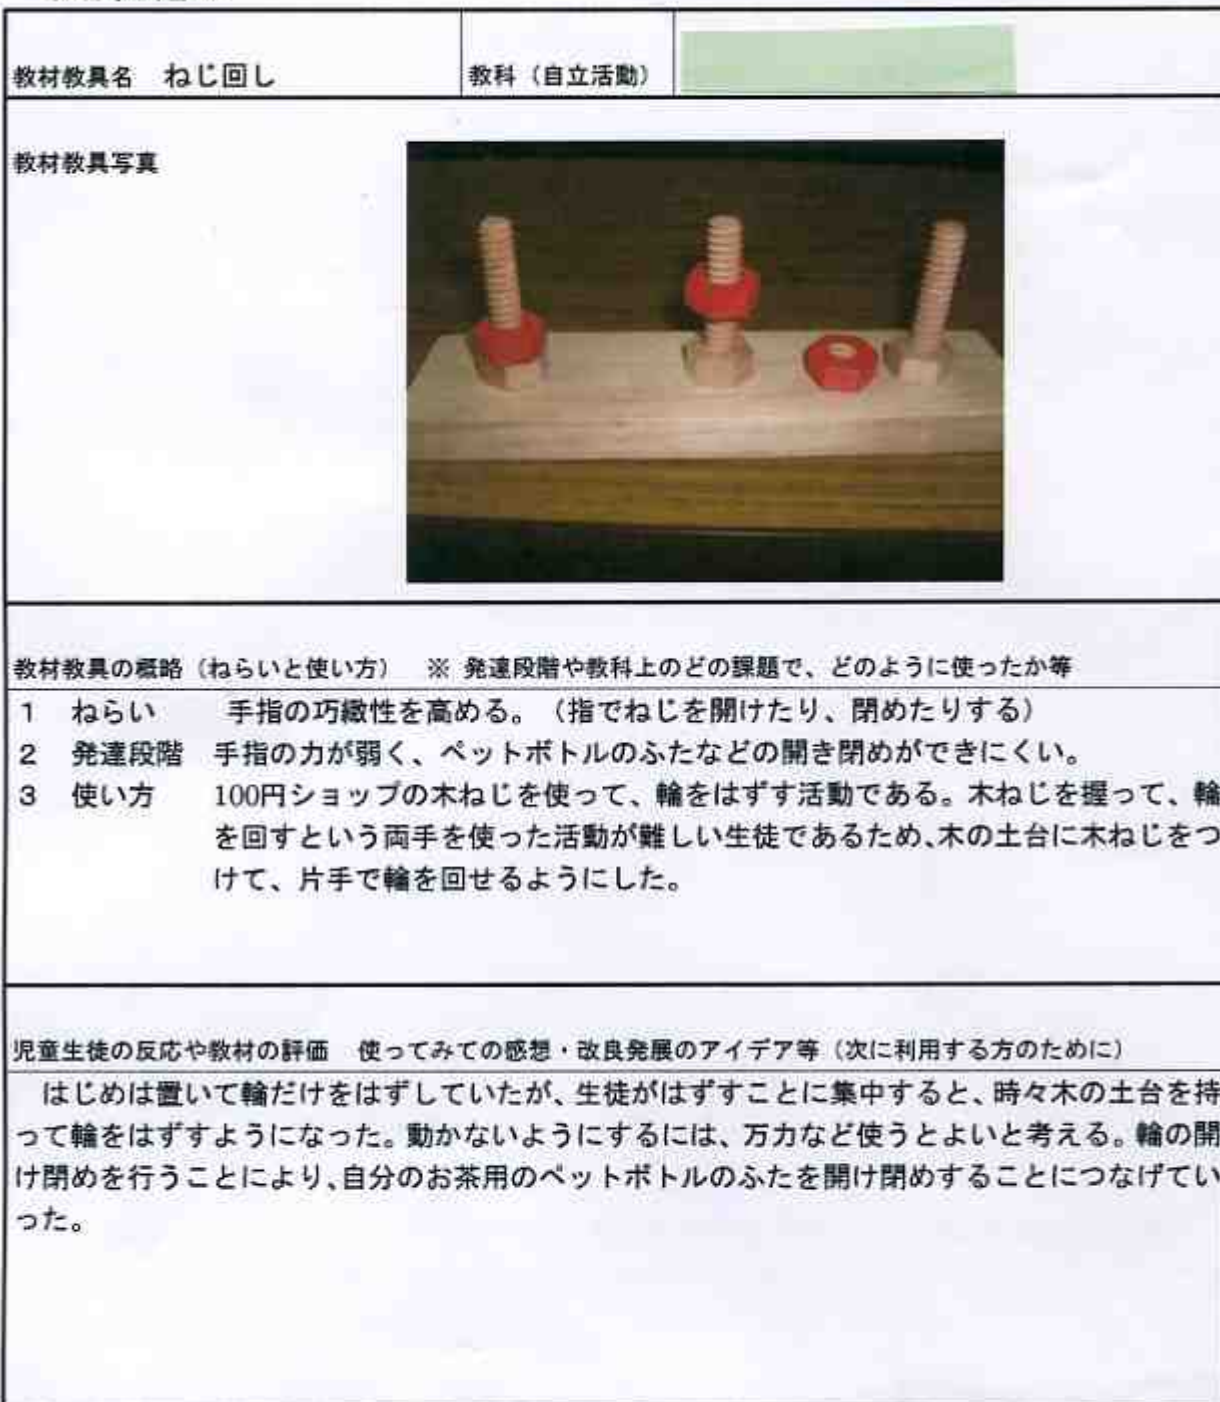 教材教具名　ねじ回し　教科（自立活動）
教材教具写真
教材教具の概略（ねらいと使い方）　※ 発達段階や教科上のどの課題で、どのように使ったか等
1　ねらい　手指の巧緻性を高める。（指でねじを開けたり、閉めたりする）
2　発達段階　手指の力が弱く、ペットボトルのふたなどの開き閉めができにくい。
3　使い方　100円ショップの木ねじを使って、輪をはずす活動である。木ねじを握って、輪
を回すという両手を使った活動が難しい生徒であるため、木の土台に木ねじをつ
けて、片手で輪を回せるようにした。
児童生徒の反応や教材の評価　使ってみての感想・改良発展のアイデア等（次に利用する方のために）
はじめは置いて輪だけをはずしていたが、生徒がはずすことに集中すると、時々木の土台を持
って輪をはずすようになった。動かないようにするには、万力など使うとよいと考える。輪の開
け閉めを行うことにより、自分のお茶用のペットボトルのふたを開け閉めすることにつなげてい
った。